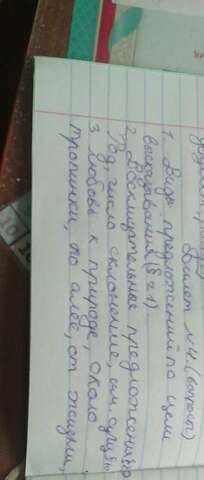 Билет №4 (вопросы)
1. Виды предложений по цели
высказывания (§ 21)
2. Восклицательные предложения
Род, число склонение, им. сущ.
3. Любовь к природе, около
тропинки, по аллее, от